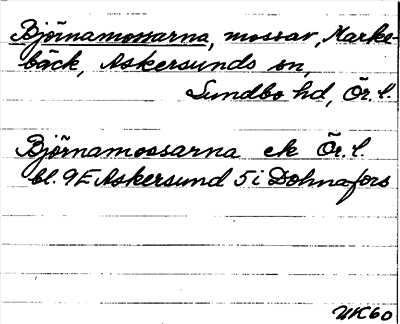 Björnamossarna, mossar, Marke-
bäck, Askersunds sn,
Sundbo hd, Ör. l.
Björnamossarna ek Ör. l.
bl. 9E Askersund 5 i Dohnafors
UK60